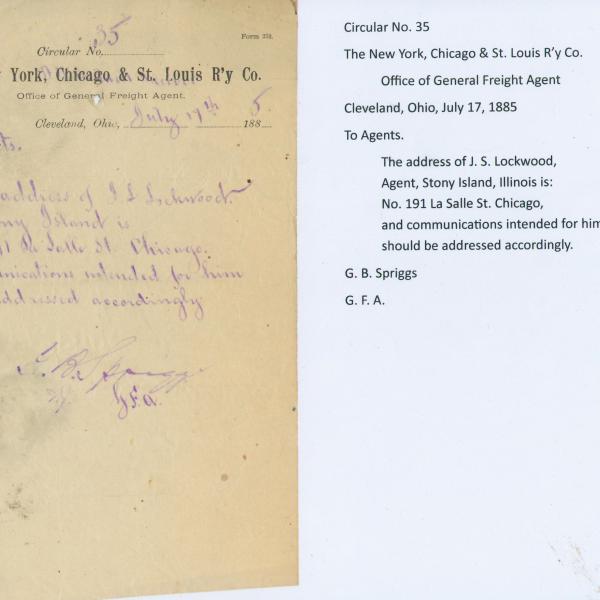 Form 252.
Circular No. 35
York, Chicago & St. Louis R'y Co.
Office of General Freight Agent.
Cleveland, Ohio, July 17th 1885
ts.
address of J. S. Lockwood.
ony Island is
91 La Salle St. Chicago.
unications intended for him
addressed accordingly
G. B. Spriggs
G.F.A.
Circular No. 35
The New York, Chicago & St. Louis R'y Co.
Office of General Freight Agent
Cleveland, Ohio, July 17, 1885
To Agents.
The address of J. S. Lockwood,
Agent, Stony Island, Illinois is:
No. 191 La Salle St. Chicago,
and communications intended for him
should be addressed accordingly.
G. B. Spriggs
G. F. A.